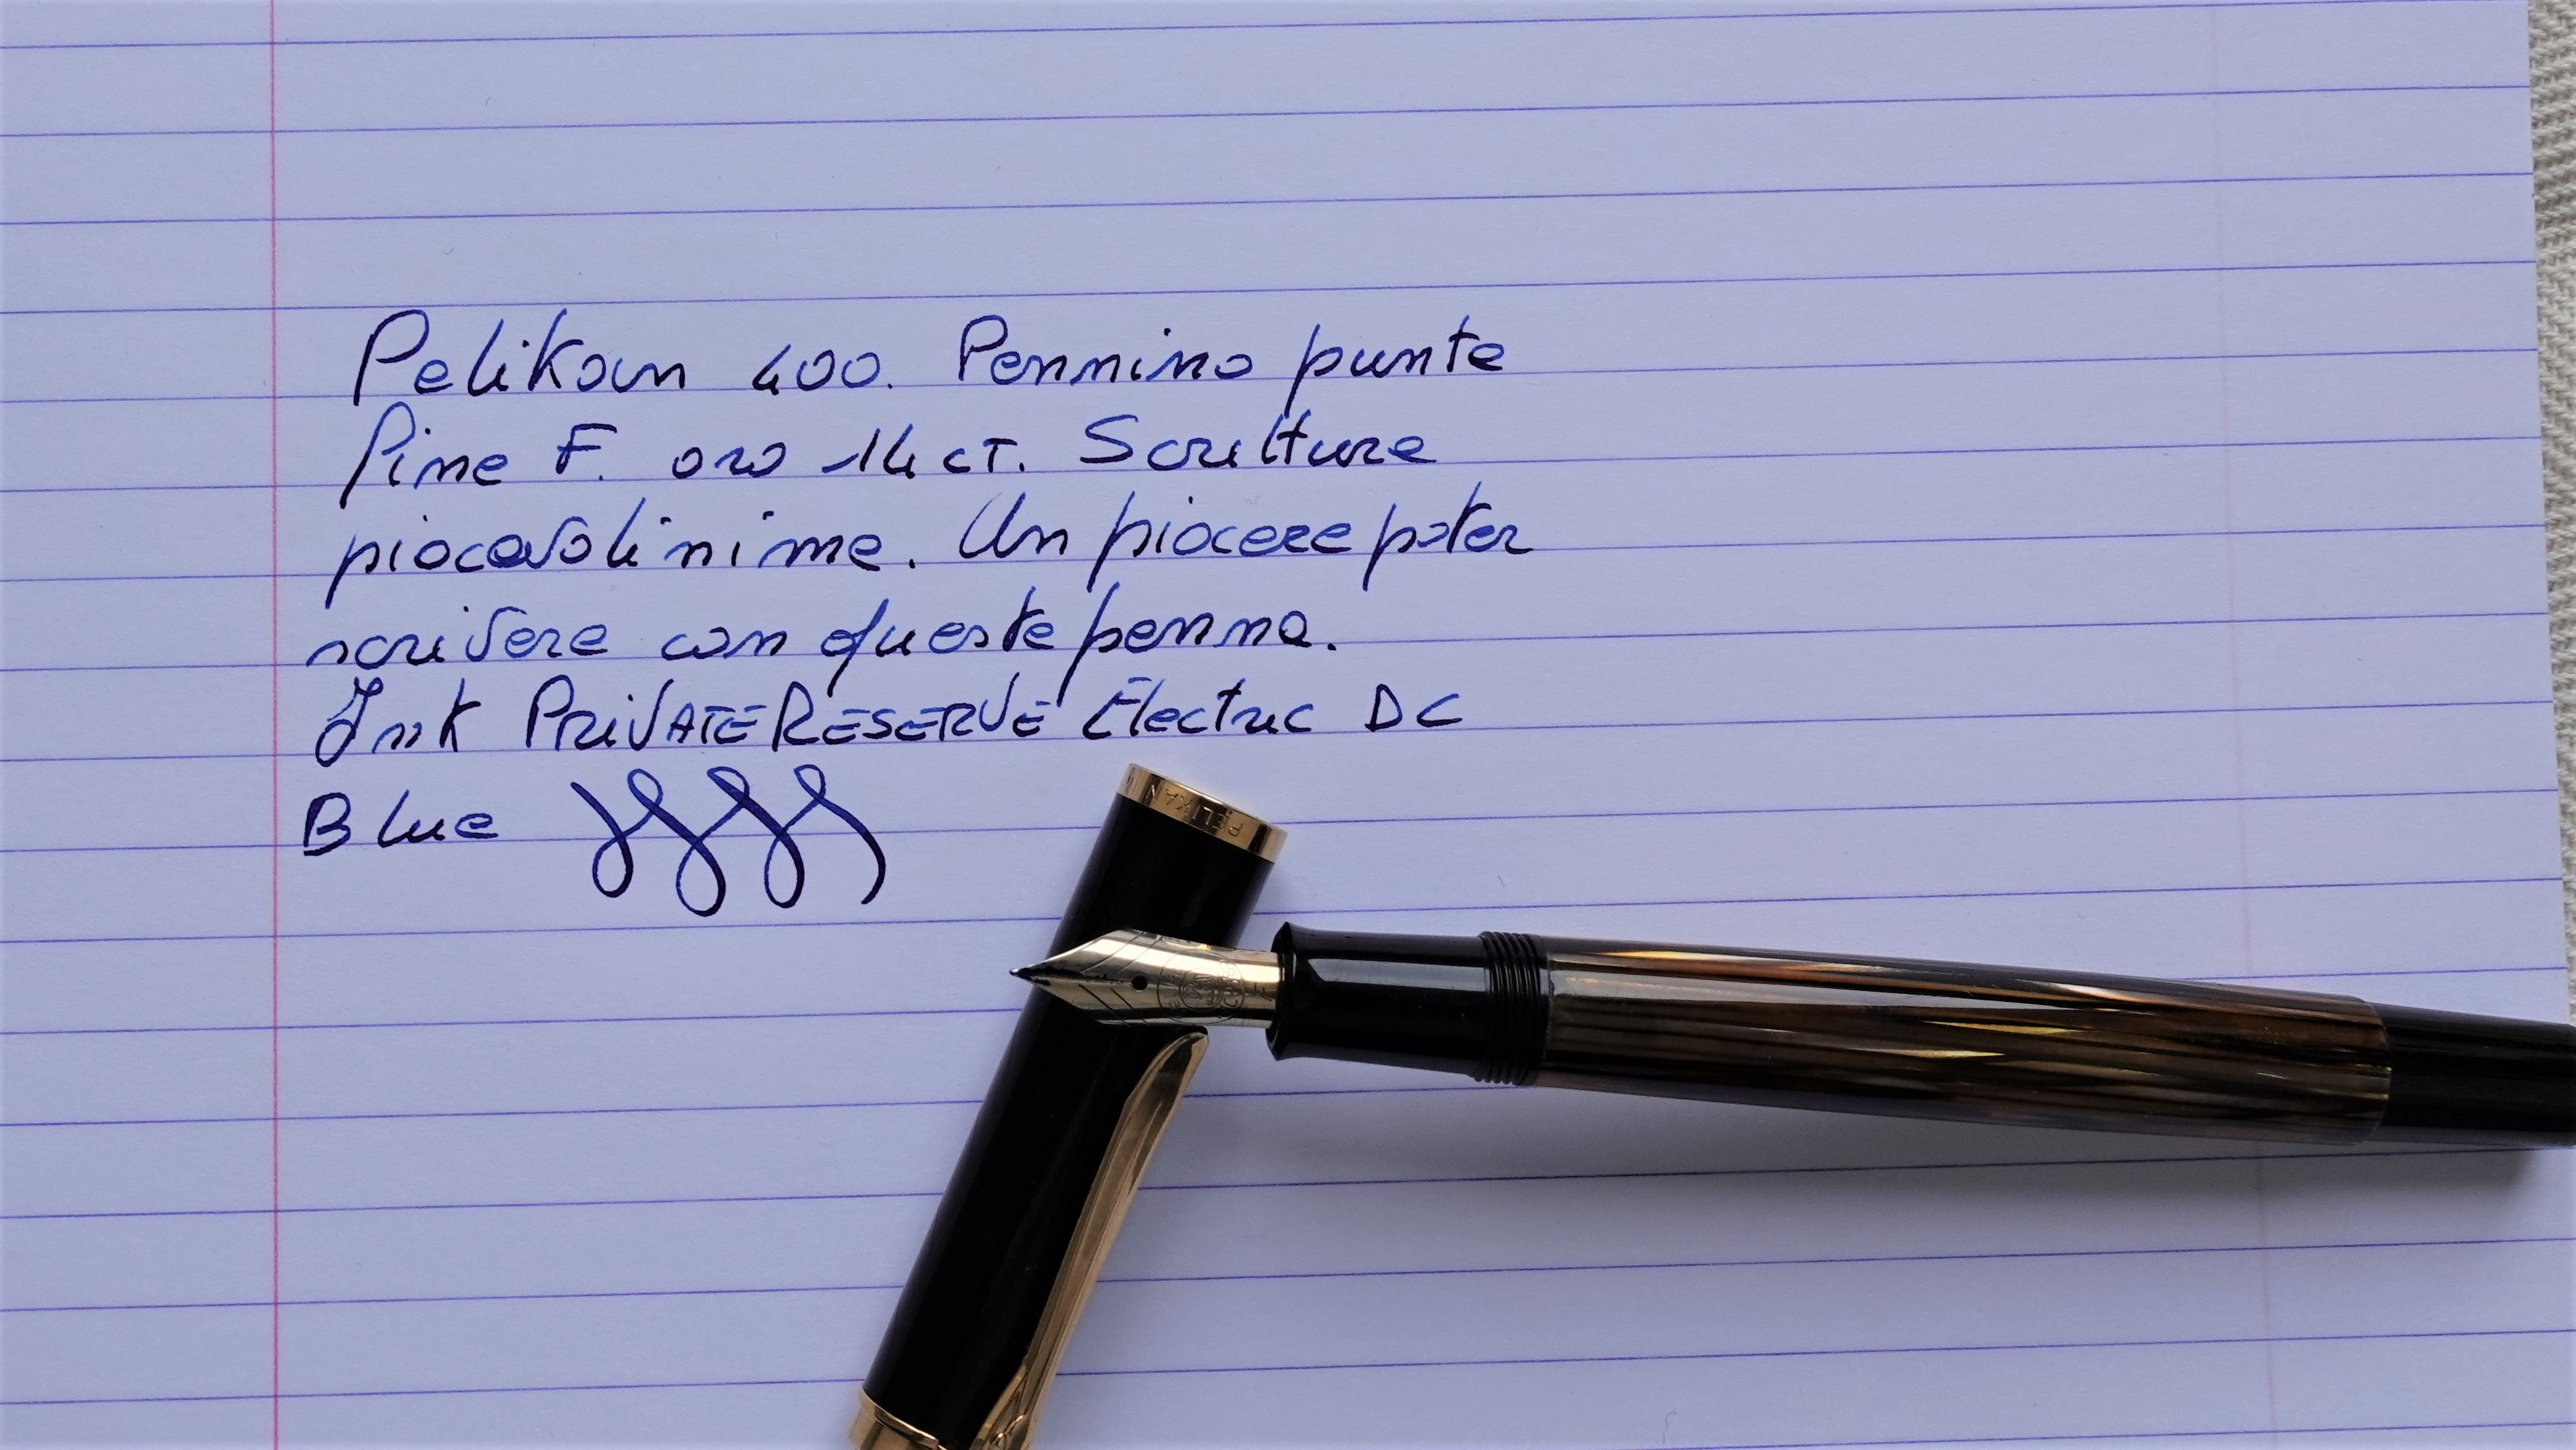 Pelikan 400. Pennino punta
fine F. oro 14 ct. Scrittura
piacevolissima. Un piacere poter
scrivere con questa penna.
Ink PRiVATE RESERVE Electric DC
Blue
PELIKAN